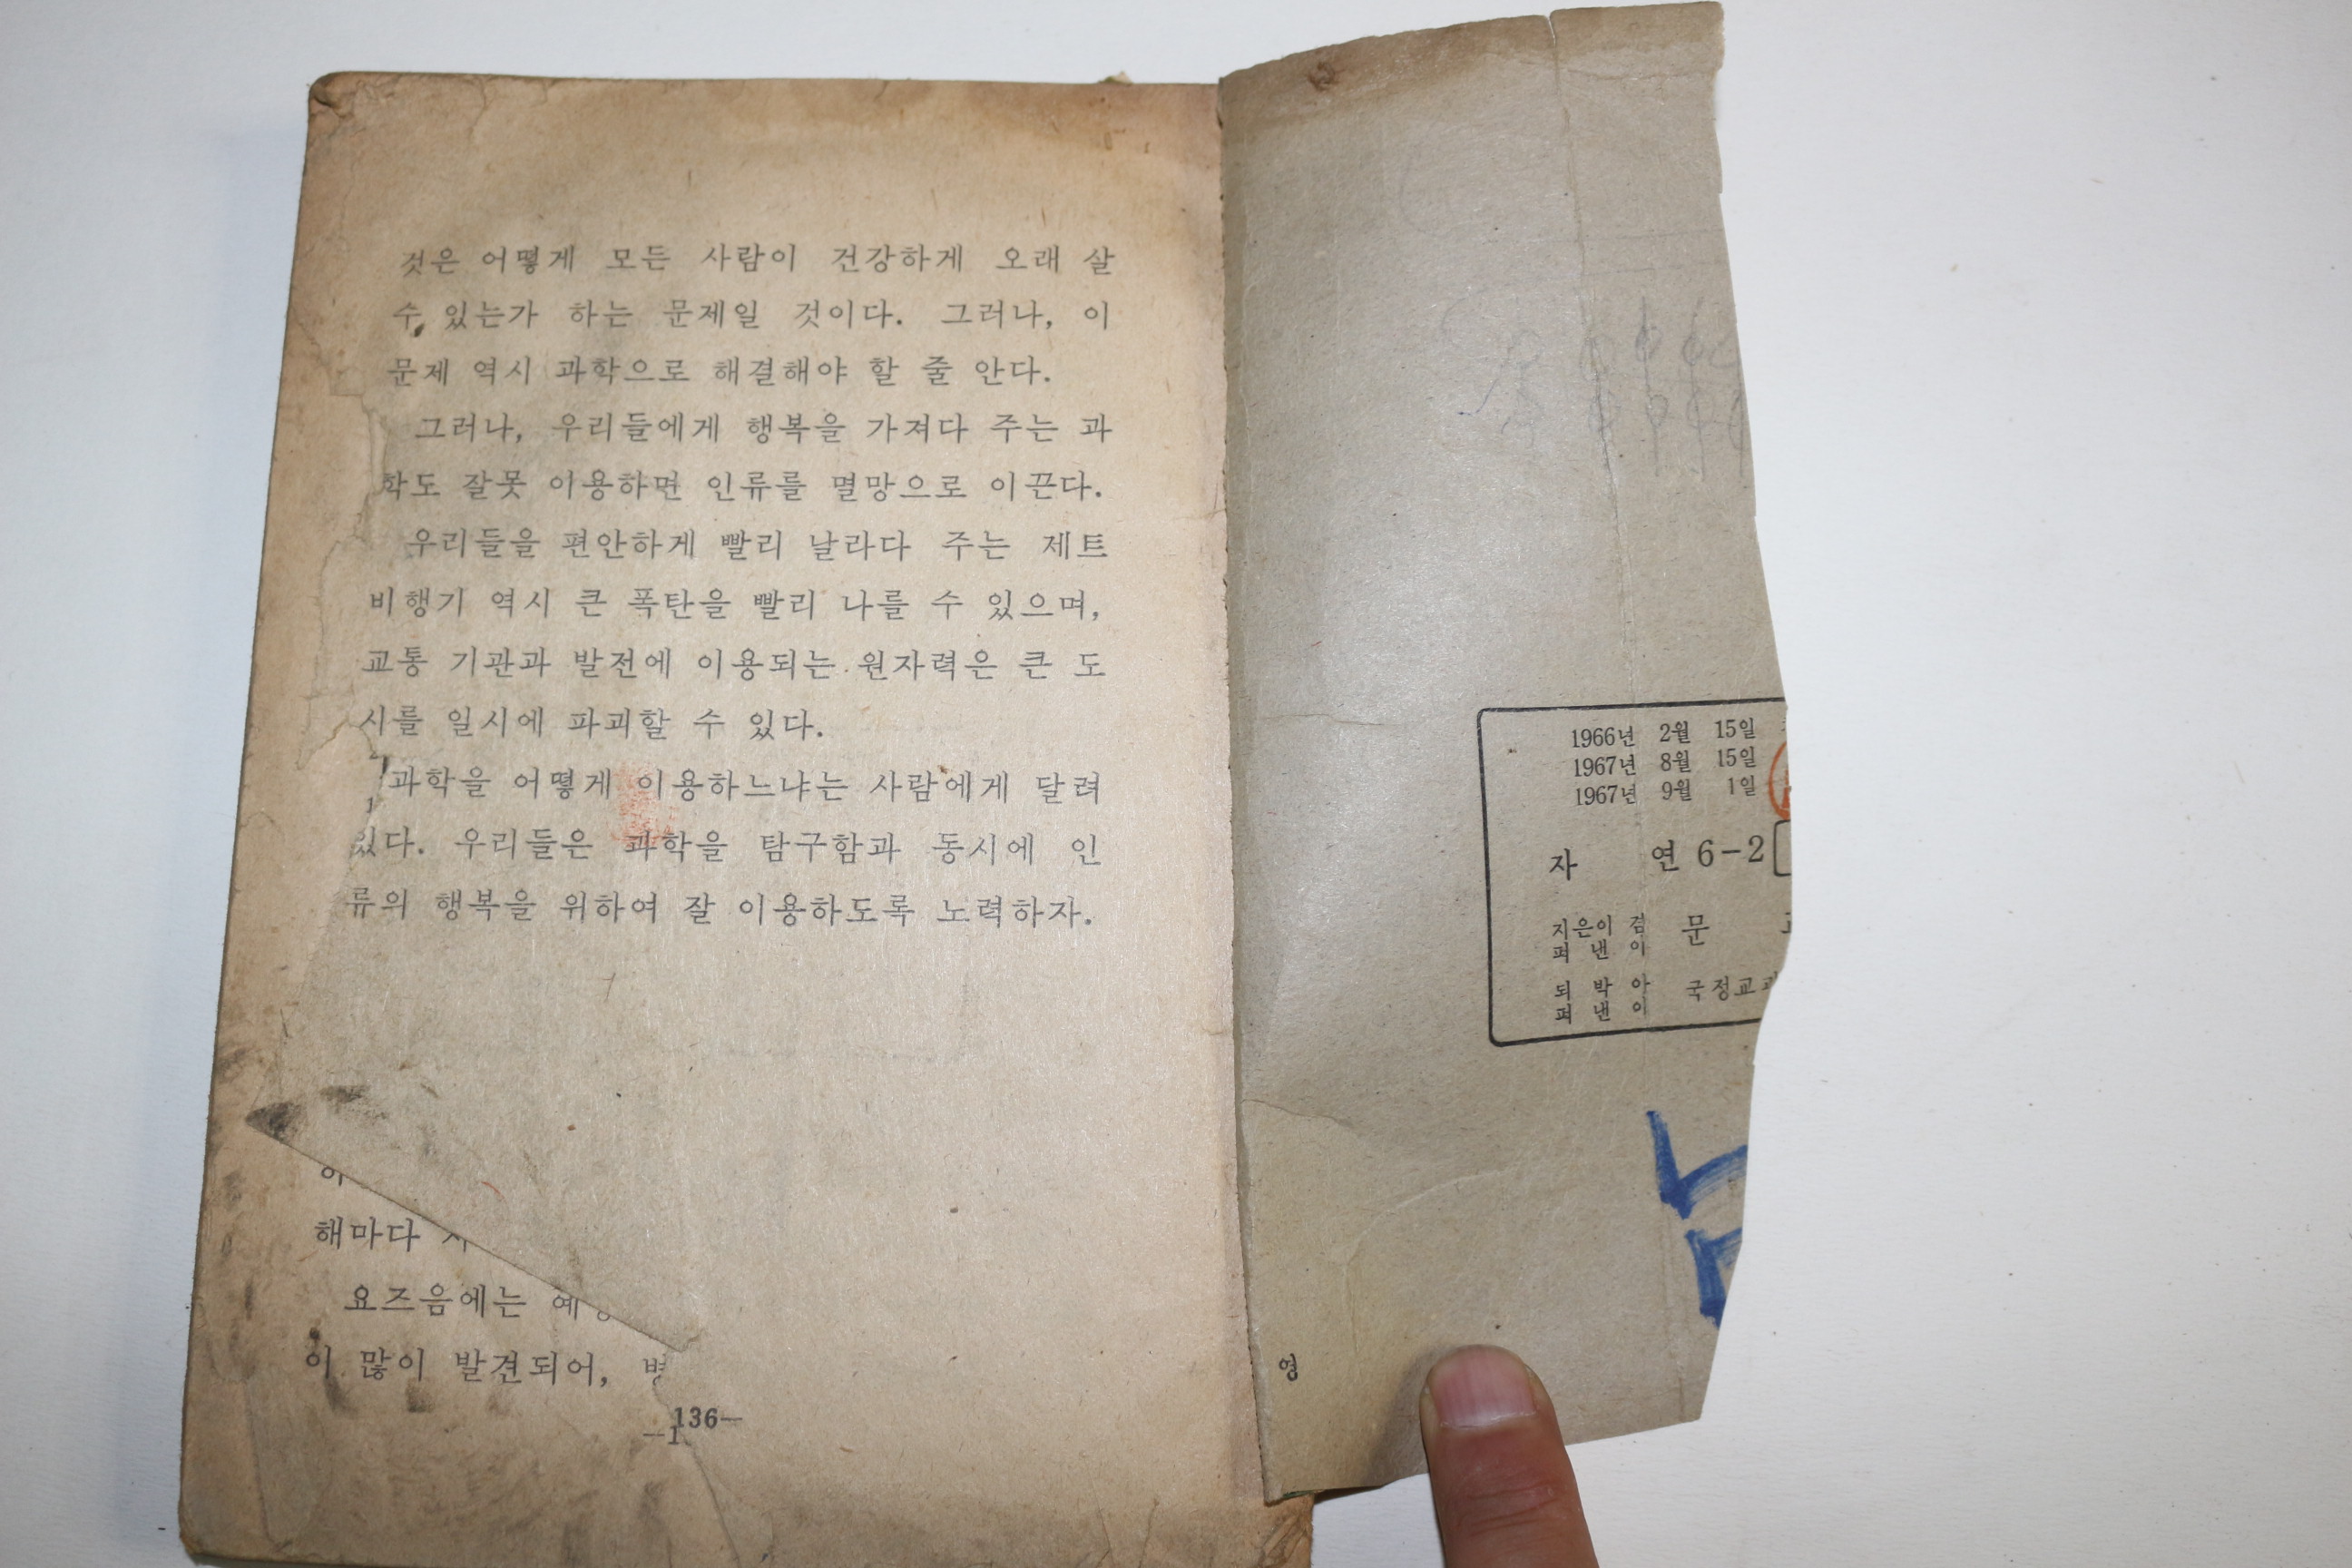 것은 어떻게 모든 사람이 건강하게 오래 살
수 있는가 하는 문제일 것이다. 그러나, 이
문제 역시 과학으로 해결해야 할 줄 안다.
그러나, 우리들에게 행복을 가져다 주는 과
학도 잘못 이용하면 인류를 멸망으로 이끈다.
우리들을 편안하게 빨리 날라다 주는 제트
비행기 역시 큰 폭탄을 빨리 나를 수 있으며,
교통 기관과 발전에 이용되는 원자력은 큰 도
시를 일시에 파괴할 수 있다.
과학을 어떻게 이용하느냐는 사람에게 달려
있다. 우리들은 과학을 탐구함과 동시에 인
류의 행복을 위하여 잘 이용하도록 노력하자.
해마다
요즈음에는 예
이 많이 발견되어,
136—
—1
1966년 2월 15일
1967년 8월 15일
1967년 9월 1일
자 연 6-2
지은이 겸
펴 낸 이
문
되 박 아
펴 낸 이
국정교
영